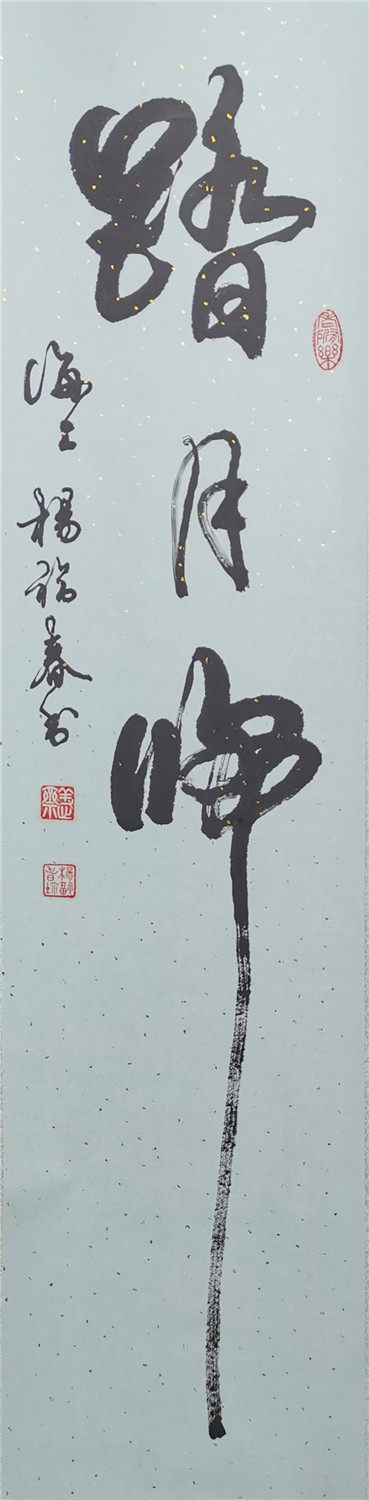 踏月归
海上杨福春书